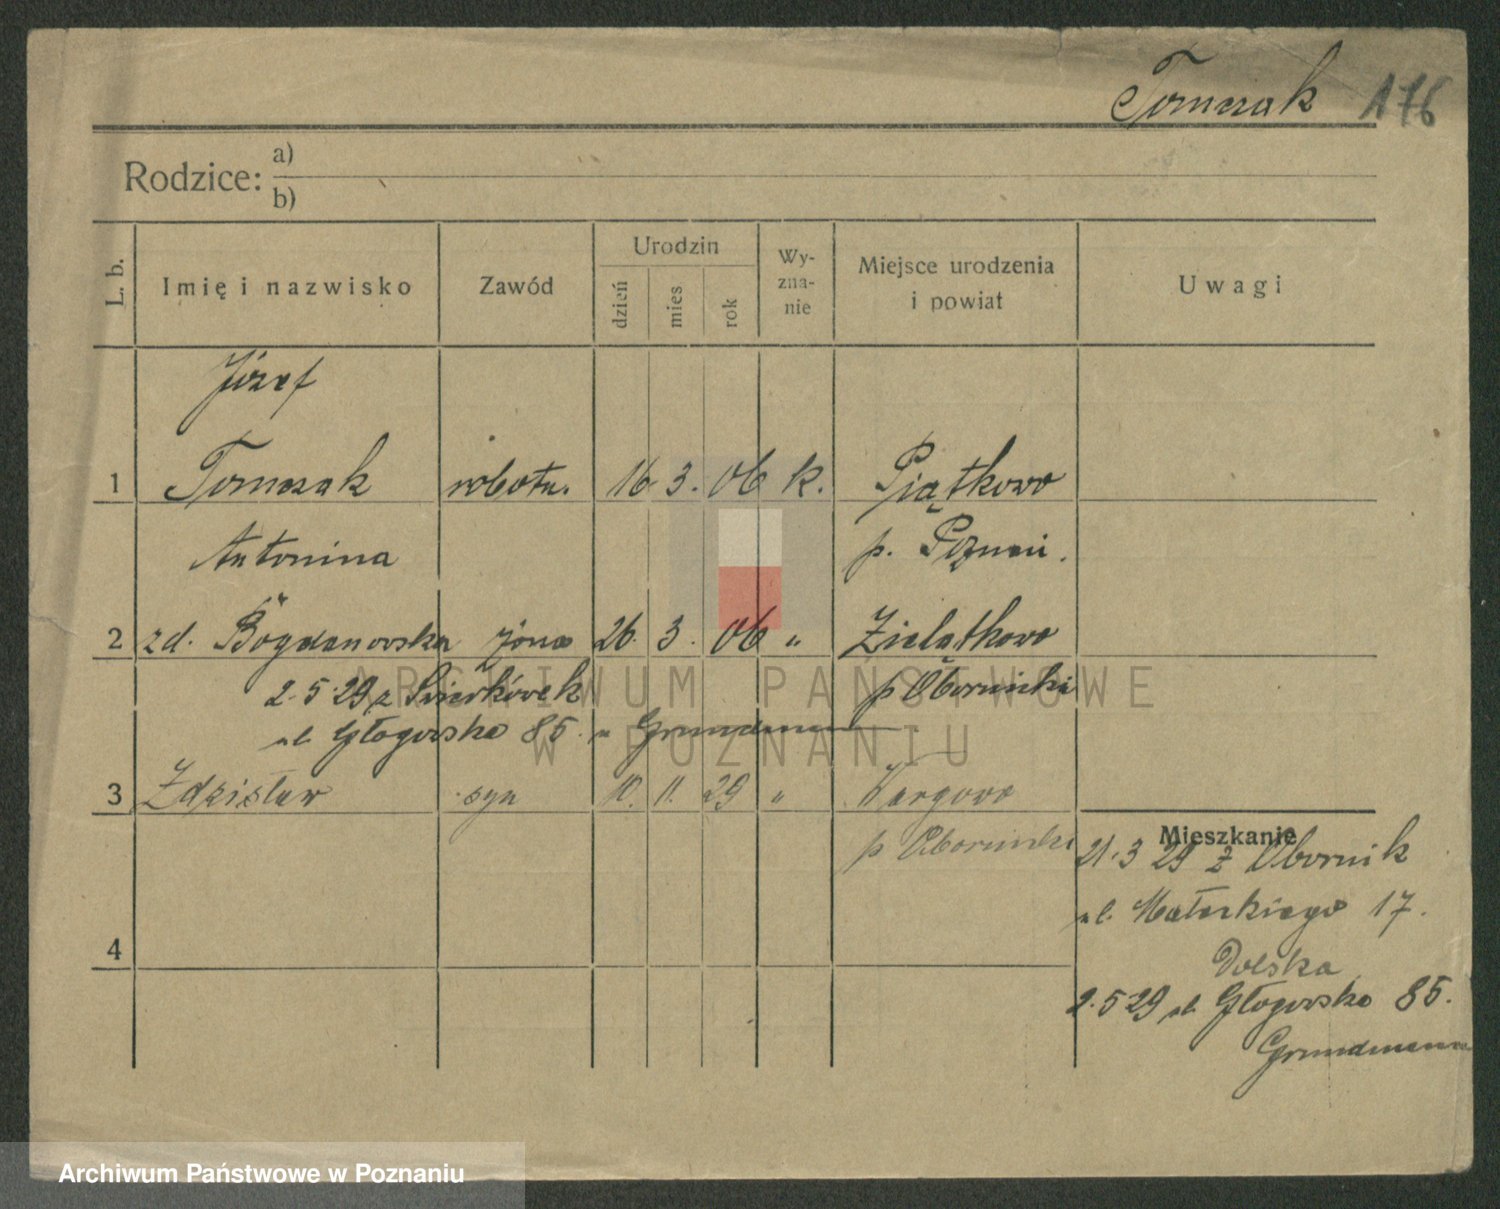 Tomczak 176
Rodzice: a)
b)
L. b. Imię i nazwisko Zawód Urodzin dzień mies rok Wyznanie Miejsce urodzenia i powiat Uwagi
Józef
1 Tomczak robotn. 16. 3. 06 k. Piątkowo
Antonina p. Poznań.
2 zd. Bogdanowska żona 26. 3. 06 „ Zielątkowo
2.5.29 z p Obornicki
ul. Głogowska 85. Grundmann
3 Zdzisław syn 10. 11. 29 „ Wargowo
p Obornicki
Mieszkanie
21.3 29 z Obornik
ul. Małeckiego 17.
4
Dolska
2.5 29 ul. Głogowska 85.
Grundmann
ARCHIWUM PAŃSTWOWE
W POZNANIU
Archiwum Państwowe w Poznaniu